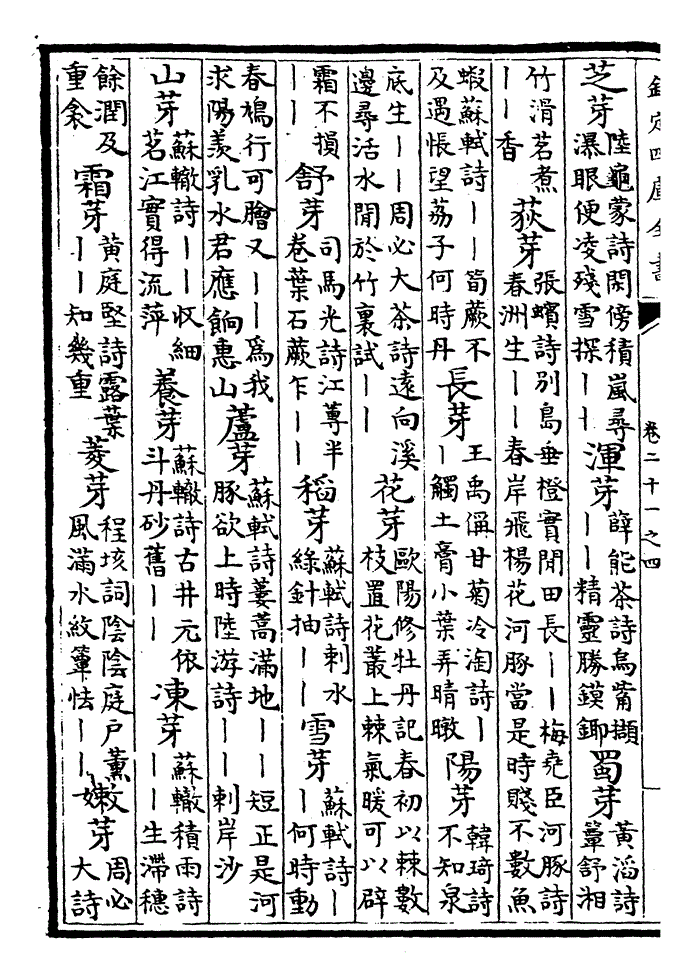 欽定四庫全書 卷二十一之四
芝芽 陸龜蒙詩閑傍積嵐尋瀑眼便凌殘雪探丨丨 渾芽 薛能茶詩烏觜擷丨丨精靈勝鏌鎁 蜀芽 黄滔詩簟舒湘
竹滑茗煮丨丨香 荻芽 張蠙詩别島垂橙實閒田長丨丨梅堯臣河豚詩春洲生丨丨春岸飛楊花河豚當是時賤不數魚
蝦蘇軾詩丨丨筍蕨不及遇悵望荔子何時丹 長芽 王禹偁甘菊冷淘詩丨丨觸土膏小葉弄晴暾 陽芽 韓琦詩不知泉
底生丨丨周必大茶詩遠向溪邊尋活水閒於竹裏試丨丨 花芽 歐陽修牡丹記春初以棘數枝置花叢上棘氣暖可以辟
霜不損丨丨 舒芽 司馬光詩江蓴半卷葉石蕨乍丨丨 稻芽 蘇軾詩刺水綠針抽丨丨 雪芽 蘇軾詩丨丨何時動
春鳩行可膾又丨丨爲我求陽羨乳水君應餉惠山 蘆芽 蘇軾詩蔞蒿滿地丨丨短正是河豚欲上時陸游詩丨丨刺岸沙
山芽 蘇轍詩丨丨收細茗江實得流萍 養芽 蘇轍詩古井元依斗丹砂舊丨丨 凍芽 蘇轍積雨詩丨丨生滯穗
餘潤及重衾 霜芽 黄庭堅詩露葉丨丨知幾重 菱芽 程垓詞陰陰庭户薰風滿水紋簟怯丨丨 嫩芽 周必大詩